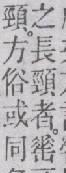 之長頸者。罃
頸。方俗或同